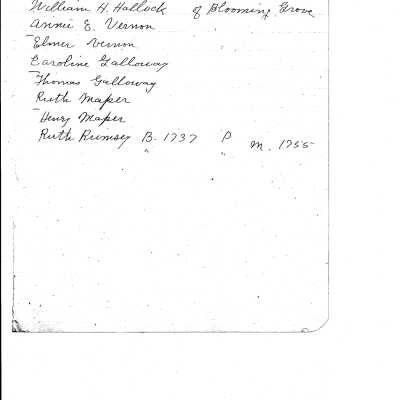 William H. Hallock of Blooming Grove
Annie E. Vernon
Elmer Vernon
Caroline Galloway
Thomas Galloway
Ruth Mapes
Henry Mapes
Ruth Rumsey B. 1737 P M. 1755
" "